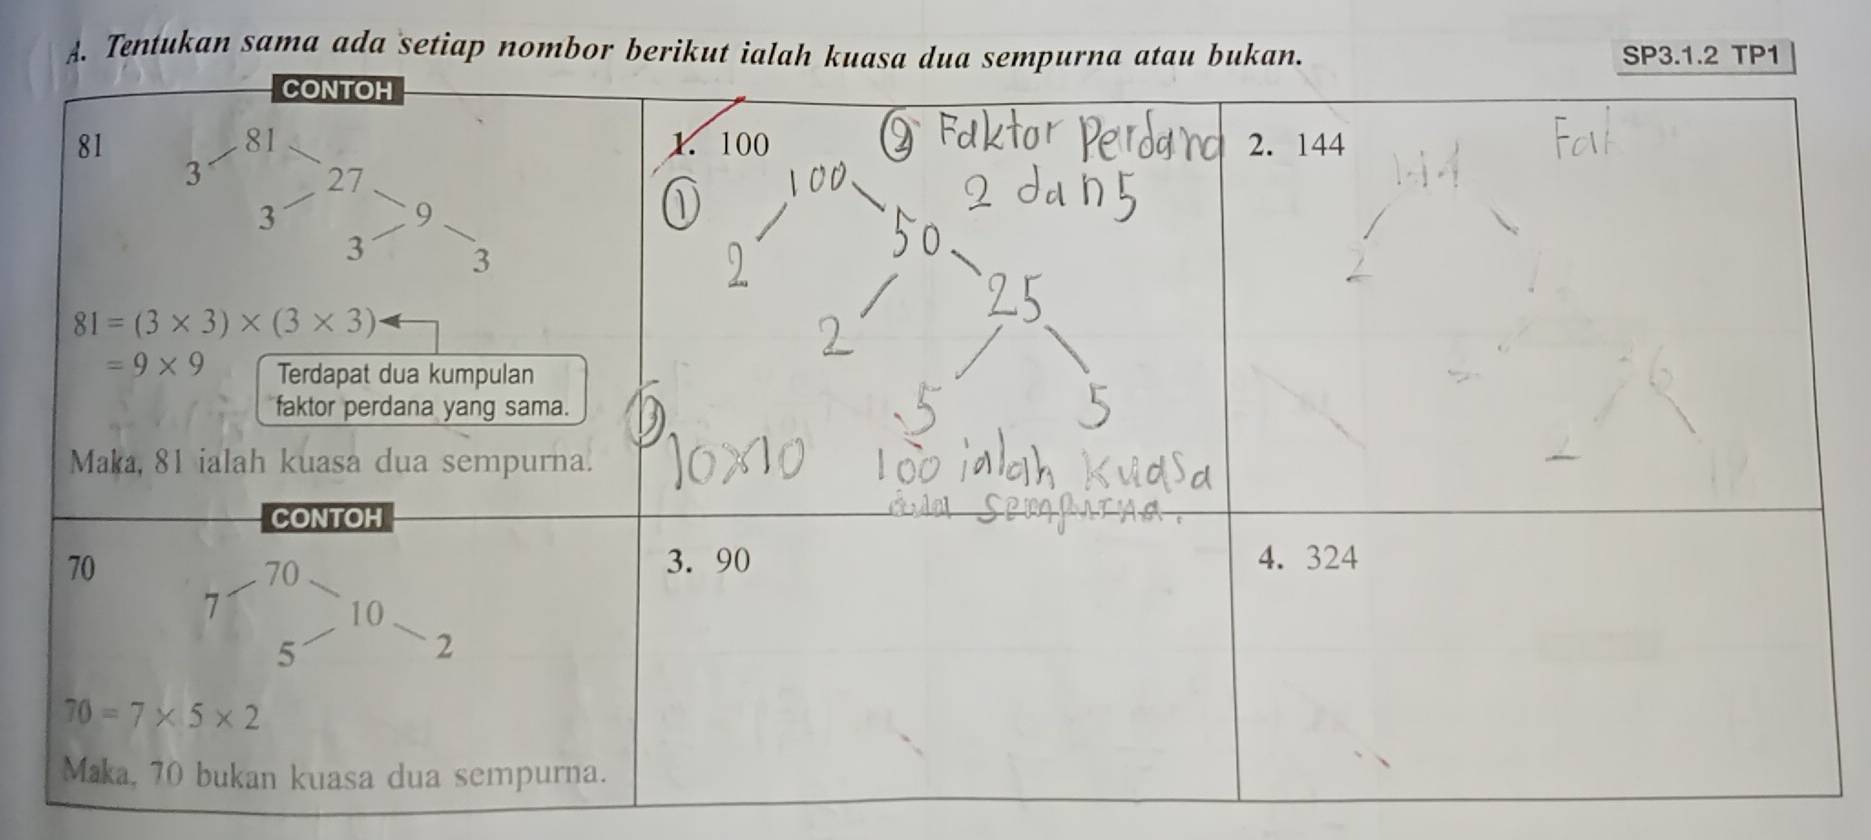 A. Tentukan sama ada setiap nombor berikut ialah kuasa dua sempurna atau bukan.
SP3.1.2 TP1
CONTOH
81
81
3
27
3
9
3
3
81 = (3 × 3) × (3 × 3)
= 9 × 9
Terdapat dua kumpulan
faktor perdana yang sama.
Maka, 81 ialah kuasa dua sempurna.
1. 100
② Faktor Perdana
2 dan 5
①
100
2
50
2
25
5
5
③
10×10
100 ialah kuasa
dua sempurna.
2. 144
Fak
144
2
2
6
2
CONTOH
70
70
7
10
5
2
70 = 7 × 5 × 2
Maka, 70 bukan kuasa dua sempurna.
3. 90
4. 324